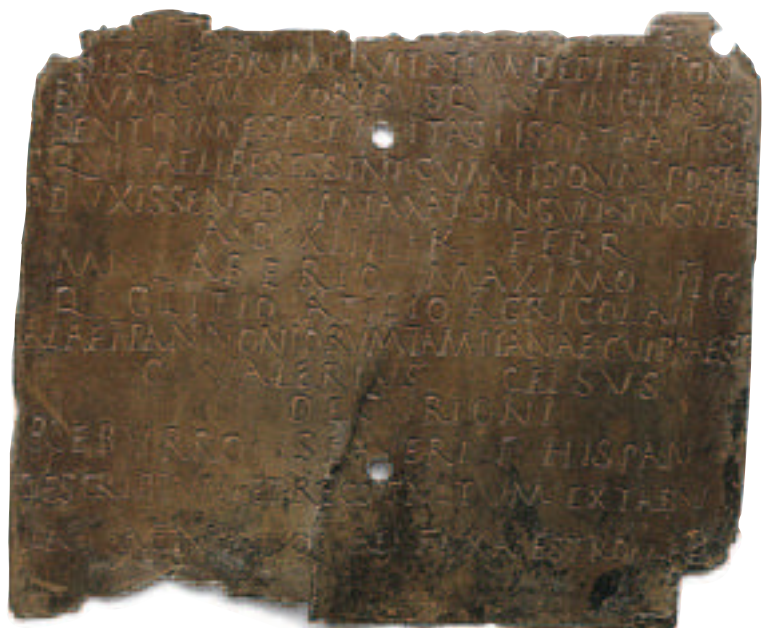 RISQVE EORVM CIVITATEM DEDIT ET CON
BIVM CVM VXORIBVS QVAS TVNC HABVIS
SENT CVM EST CIVITAS IIS DATA AVT SI
QVI CAELIBES ESSENT CVM IIS QVAS POSTEA
DVXISSENT DVMTAXAT SINGVLI SINGVLAS
A D XIIII K FEBR
M LABERIO MAXIMO II
Q GLITIO ATILIO AGRICOLA II
ALAE I PANNONIORVM TAMPIANAE CVI PRAEEST
C VALERIVS CELSVS
DECVRIONI
REBVRRO SEVERI F HISPAN
DESCRIPTVM ET RECOGNITVM EX TABVLA
AENEA QVAE FIXA EST ROMAE